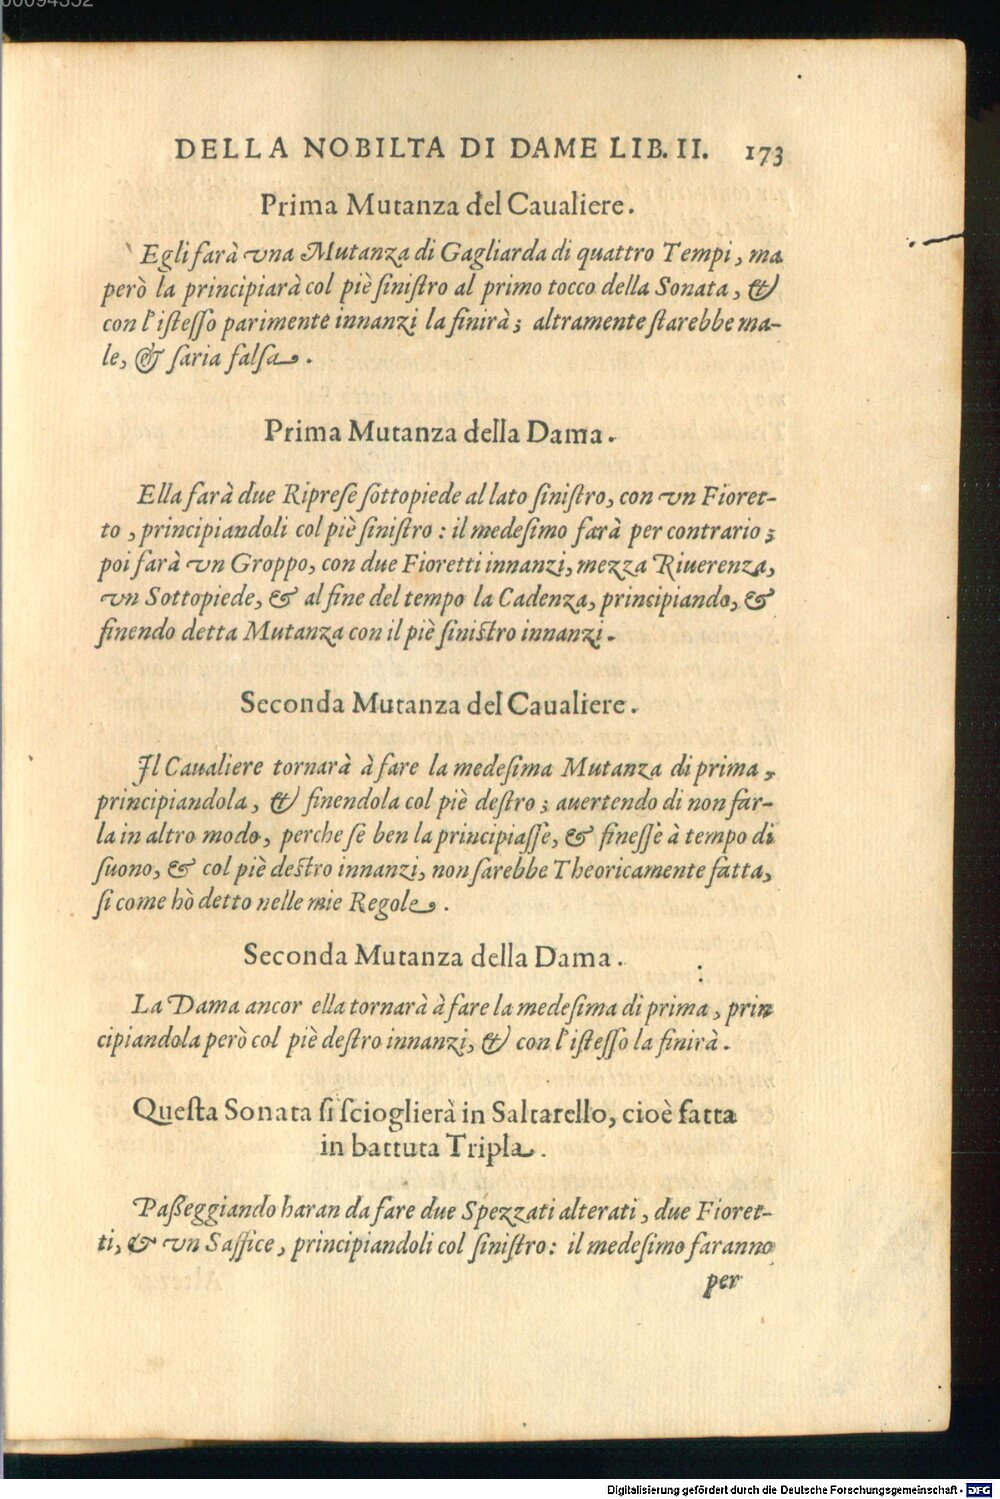 00094352
DELLA NOBILTA DI DAME LIB. II. 173
Prima Mutanza del Caualiere.
Egli farà vna Mutanza di Gagliarda di quattro Tempi, ma
però la principiarà col piè ſiniſtro al primo tocco della Sonata, &
con l'iſteſſo parimente innanzi la finirà; altramente ſtarebbe ma-
le, & ſaria falſa.
Prima Mutanza della Dama.
Ella farà due Ripreſe ſottopiede al lato ſiniſtro, con vn Fioret-
to, principiandoli col piè ſiniſtro: il medeſimo farà per contrario;
poi farà vn Groppo, con due Fioretti innanzi, mezza Riuerenza,
vn Sottopiede, & al fine del tempo la Cadenza, principiando, &
finendo detta Mutanza con il piè ſiniſtro innanzi.
Seconda Mutanza del Caualiere.
Il Caualiere tornarà à fare la medeſima Mutanza di prima,
principiandola, & finendola col piè deſtro; auertendo di non far-
la in altro modo, perche ſe ben la principiaſſe, & fineſſe à tempo di
ſuono, & col piè deſtro innanzi, non ſarebbe Theoricamente fatta,
ſi come hò detto nelle mie Regole.
Seconda Mutanza della Dama.
La Dama ancor ella tornarà à fare la medeſima di prima, prin
cipiandola però col piè deſtro innanzi, & con l'iſteſſo la finirà.
Queſta Sonata ſi ſcioglierà in Saltarello, cioè fatta
in battuta Tripla.
Paßeggiando haran da fare due Spezzati alterati, due Fioret-
ti, & vn Saffice, principiandoli col ſiniſtro: il medeſimo faranno
per
Digitalisierung gefördert durch die Deutsche Forschungsgemeinschaft - DFG